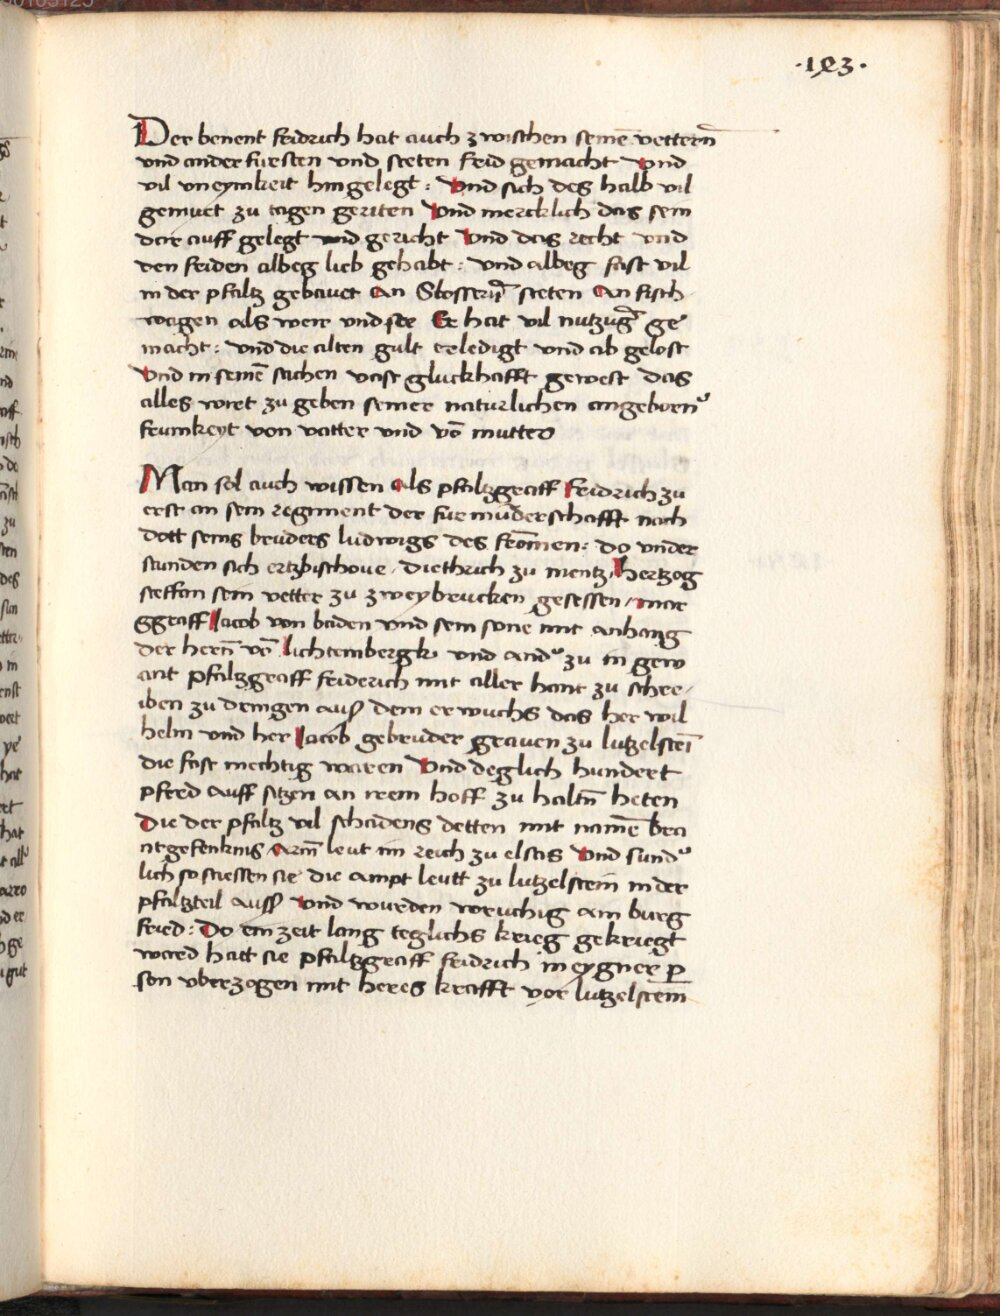 ·193·
Der benent feidrich hat auch zwischen seinē vettern̄
vnd ander fursten vnd steten frid gemacht Vnd
vil vneynikeit hin gelegt : Vnd sich des halb vil
gemuet zu tagen geriten Vnd mercklich das sein
dar auff gelegt vnd gericht Vnd das recht vnd
den feiden albeg lieb gehabt : vnd albeg fast vil
in der pfaltz gebauet An Slossern̄ steten An fisch
wagen als weir vnd see Er hat vil nutzūg ge
macht : vnd die alten gult erledigt vnd ab gelost
Vnd in seinē sachen vast gluckhafft gewest das
alles wirt zu geben seiner naturlichen angeborn̄
frumkeyt von vatter vnd vō mutter
Man sol auch wissen Als pfaltzgraff Feidrich zu
erst an sein regiment der furmūderschafft nach
dott seins bruders ludwigs des frōmen : do vnder
stunden sich ertzbischoue diethrich zu mentz / Hertzog
steffan sein vetter zu zweybrucken gesessen / mar
ggraff Jacob von baden vnd sein sone mit anhang
der hern̄ vō lichtembergk vnd and' zu in gew
ant pfaltzgraff feiderich mit aller hant zu schre /
iben zu dringen auß dem erwuchs das her wil
helm vnd her Jacob gebruder grauen zu lutzelsteī
die fast mechtig waren Vnd deglich hundert
pferd auff sitzen an irem hoff zu haltn̄ heten
Die der pfaltz vil schadens detten mit namē bra
nt gefenknis Arm̄ leut im reich zu elsas Vnd sund'
lich so stiessen sie die ampt leutt zu lutzelstein in der
pfaltzteil auß Vnd wurden woruchig am burg
fried : Do ein zeit lang teglichs krieg gekriegt
ward hatt sie pfaltzgraff feidrich in eygner p̱
son vberzogen mit heres krafft vor lutzelstein